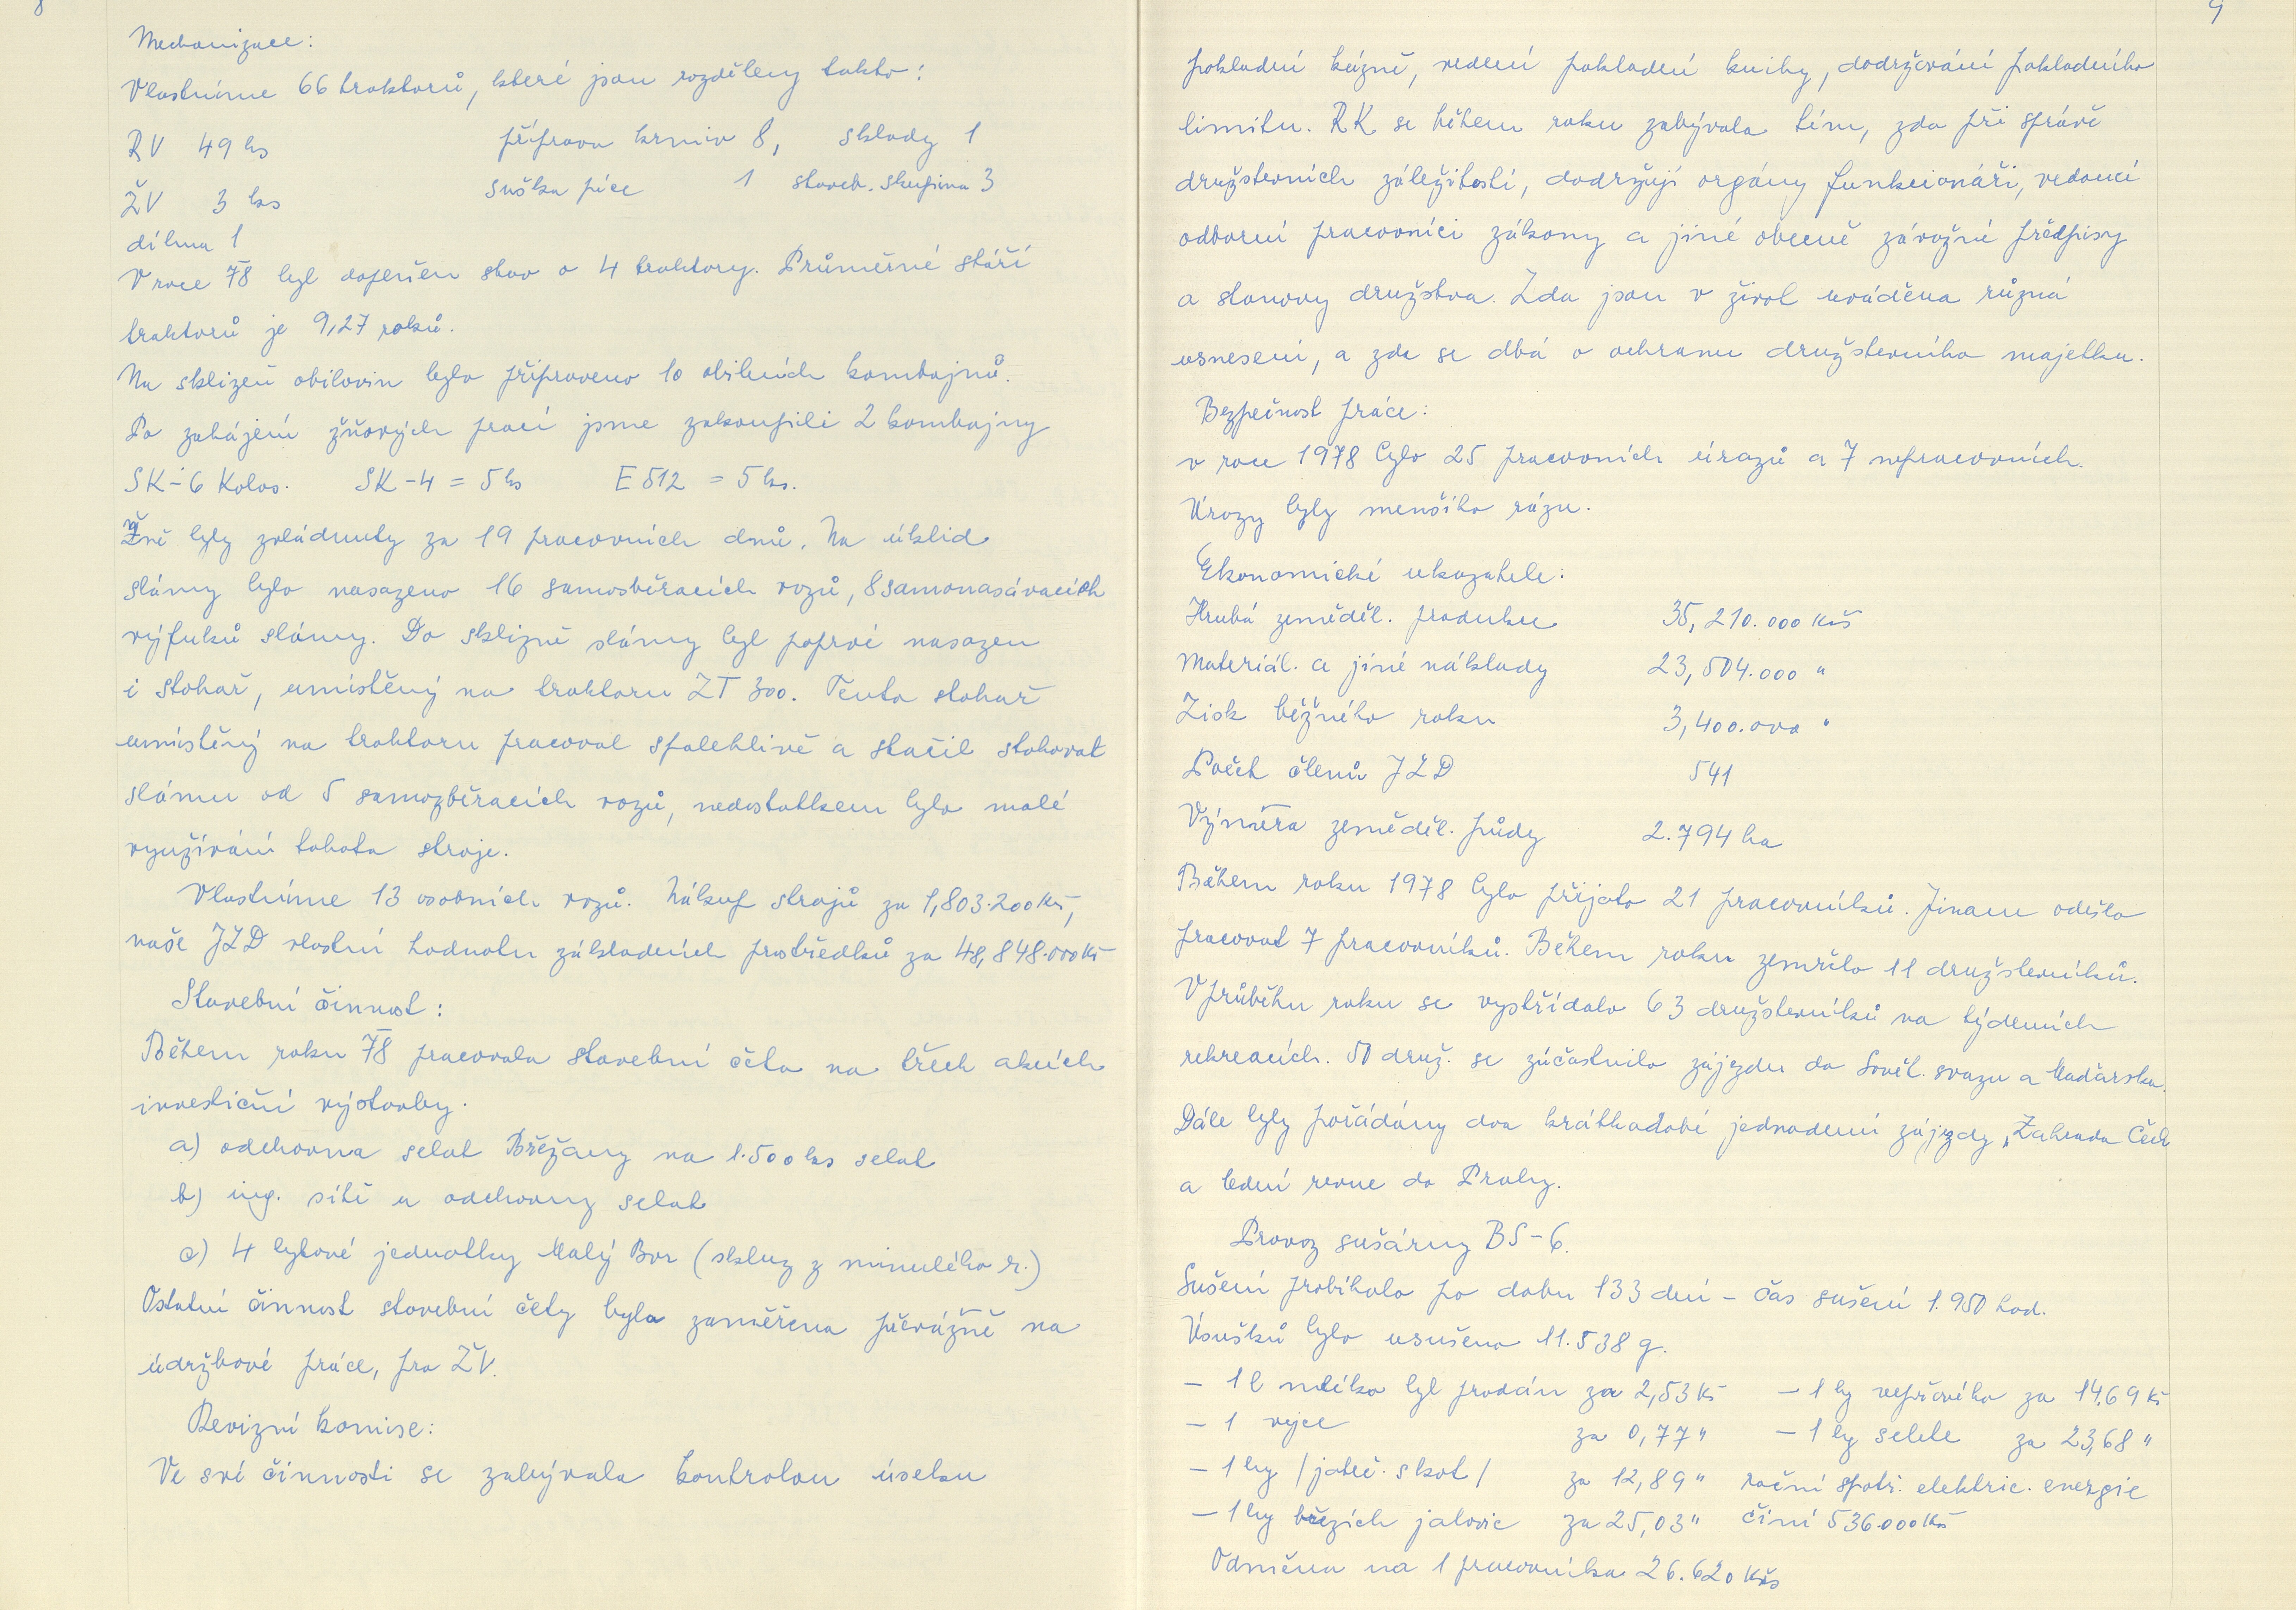 8
Mechanizace:
Vlastníme 66 traktorů, které jsou rozděleny takto:
RV 49 ks příprava krmiv 8, sklady 1
ŽV 3 ks suška píce 1 staveb. skupina 3
dílna 1
V roce 78 byl doplněn stav o 4 traktory. Průměrné stáří
traktorů je 9,27 roků.
Na sklizeň obilovin bylo připraveno 10 obilních kombajnů.
Po zahájení žňových prací jsme zakoupili 2 kombajny
SK-6 Kolos. SK-4 = 5 ks E 512 = 5 ks.
Žně byly zvládnuty za 19 pracovních dnů. Na úklid
slámy bylo nasazeno 16 samosběracích vozů, 8 samonasávacích
výfuků slámy. Do sklizně slámy byl poprvé nasazen
i stohař, umístěný na traktoru ZT 300. Tento stohař
umístěný na traktoru pracoval spolehlivě a stačil stohovat
slámu od 5 samozběracích vozů, nedostatkem bylo malé
využívání tohoto stroje.
Vlastníme 13 osobních vozů. Nákup strojů za 1,803.200 Kčs,
naše JZD vlastní hodnotu základních prostředků za 48,848.000 Kčs
Stavební činnost:
Během roku 78 pracovala stavební četa na třech akcích
investiční výstavby.
a) odchovna selat Břežany na 1.500 ks selat
b) ing. sítě u odchovny selat
c) 4 bytové jednotky Malý Bor (skluz z minulého r.)
Ostatní činnost stavební čety byla zaměřena převážně na
údržbové práce, pro ŽV.
Revizní komise:
Ve své činnosti se zabývala kontrolou úseku
9
pokladní kázně, vedení pokladní knihy, dodržování pokladního
limitu. RK se během roku zabývala tím, zda při správě
družstevních záležitostí, dodržují orgány funkcionáři, vedoucí
odborní pracovníci zákony a jiné obecně závažné předpisy
a stanovy družstva. Zda jsou v život uváděna různá
usnesení, a zda se dbá o ochranu družstevního majetku.
Bezpečnost práce:
v roce 1978 bylo 25 pracovních úrazů a 7 nepracovních.
Úrazy byly menšího rázu.
Ekonomické ukazatele:
Hrubá zeměděl. produkce 35,210.000 Kčs
Materiál. a jiné náklady 23,504.000 "
Zisk běžného roku 3,400.000 "
Počet členů JZD 541
Výměra zeměděl. půdy 2.794 ha
Během roku 1978 bylo přijato 21 pracovníků. Jinam odešlo
pracovat 7 pracovníků. Během roku zemřelo 11 družstevníků.
V průběhu roku se vystřídalo 63 družstevníků na týdenních
rekreacích. 50 druž. se zúčastnilo zájezdu do Sovět. svazu a Maďarska.
Dále byly pořádány dva krátkodobé jednodenní zájezdy „Zahrada Čech
a lední revue do Prahy.
Provoz sušárny BS-6.
Sušení probíhalo po dobu 133 dní – čas sušení 1.950 hod.
Úsušků bylo usušeno 11.538 q.
– 1 l mléka byl prodán za 2,53 Kč – 1 kg vepřového za 14,69 Kč
– 1 vejce za 0,77 " – 1 kg selete za 23,68 "
– 1 kg /jateč. skot/ za 12,89 " roční spotř. elektric. energie
– 1 kg březích jalovic za 25,03 " činí 536.000 Kčs
Odměna na 1 pracovníka 26.620 Kčs